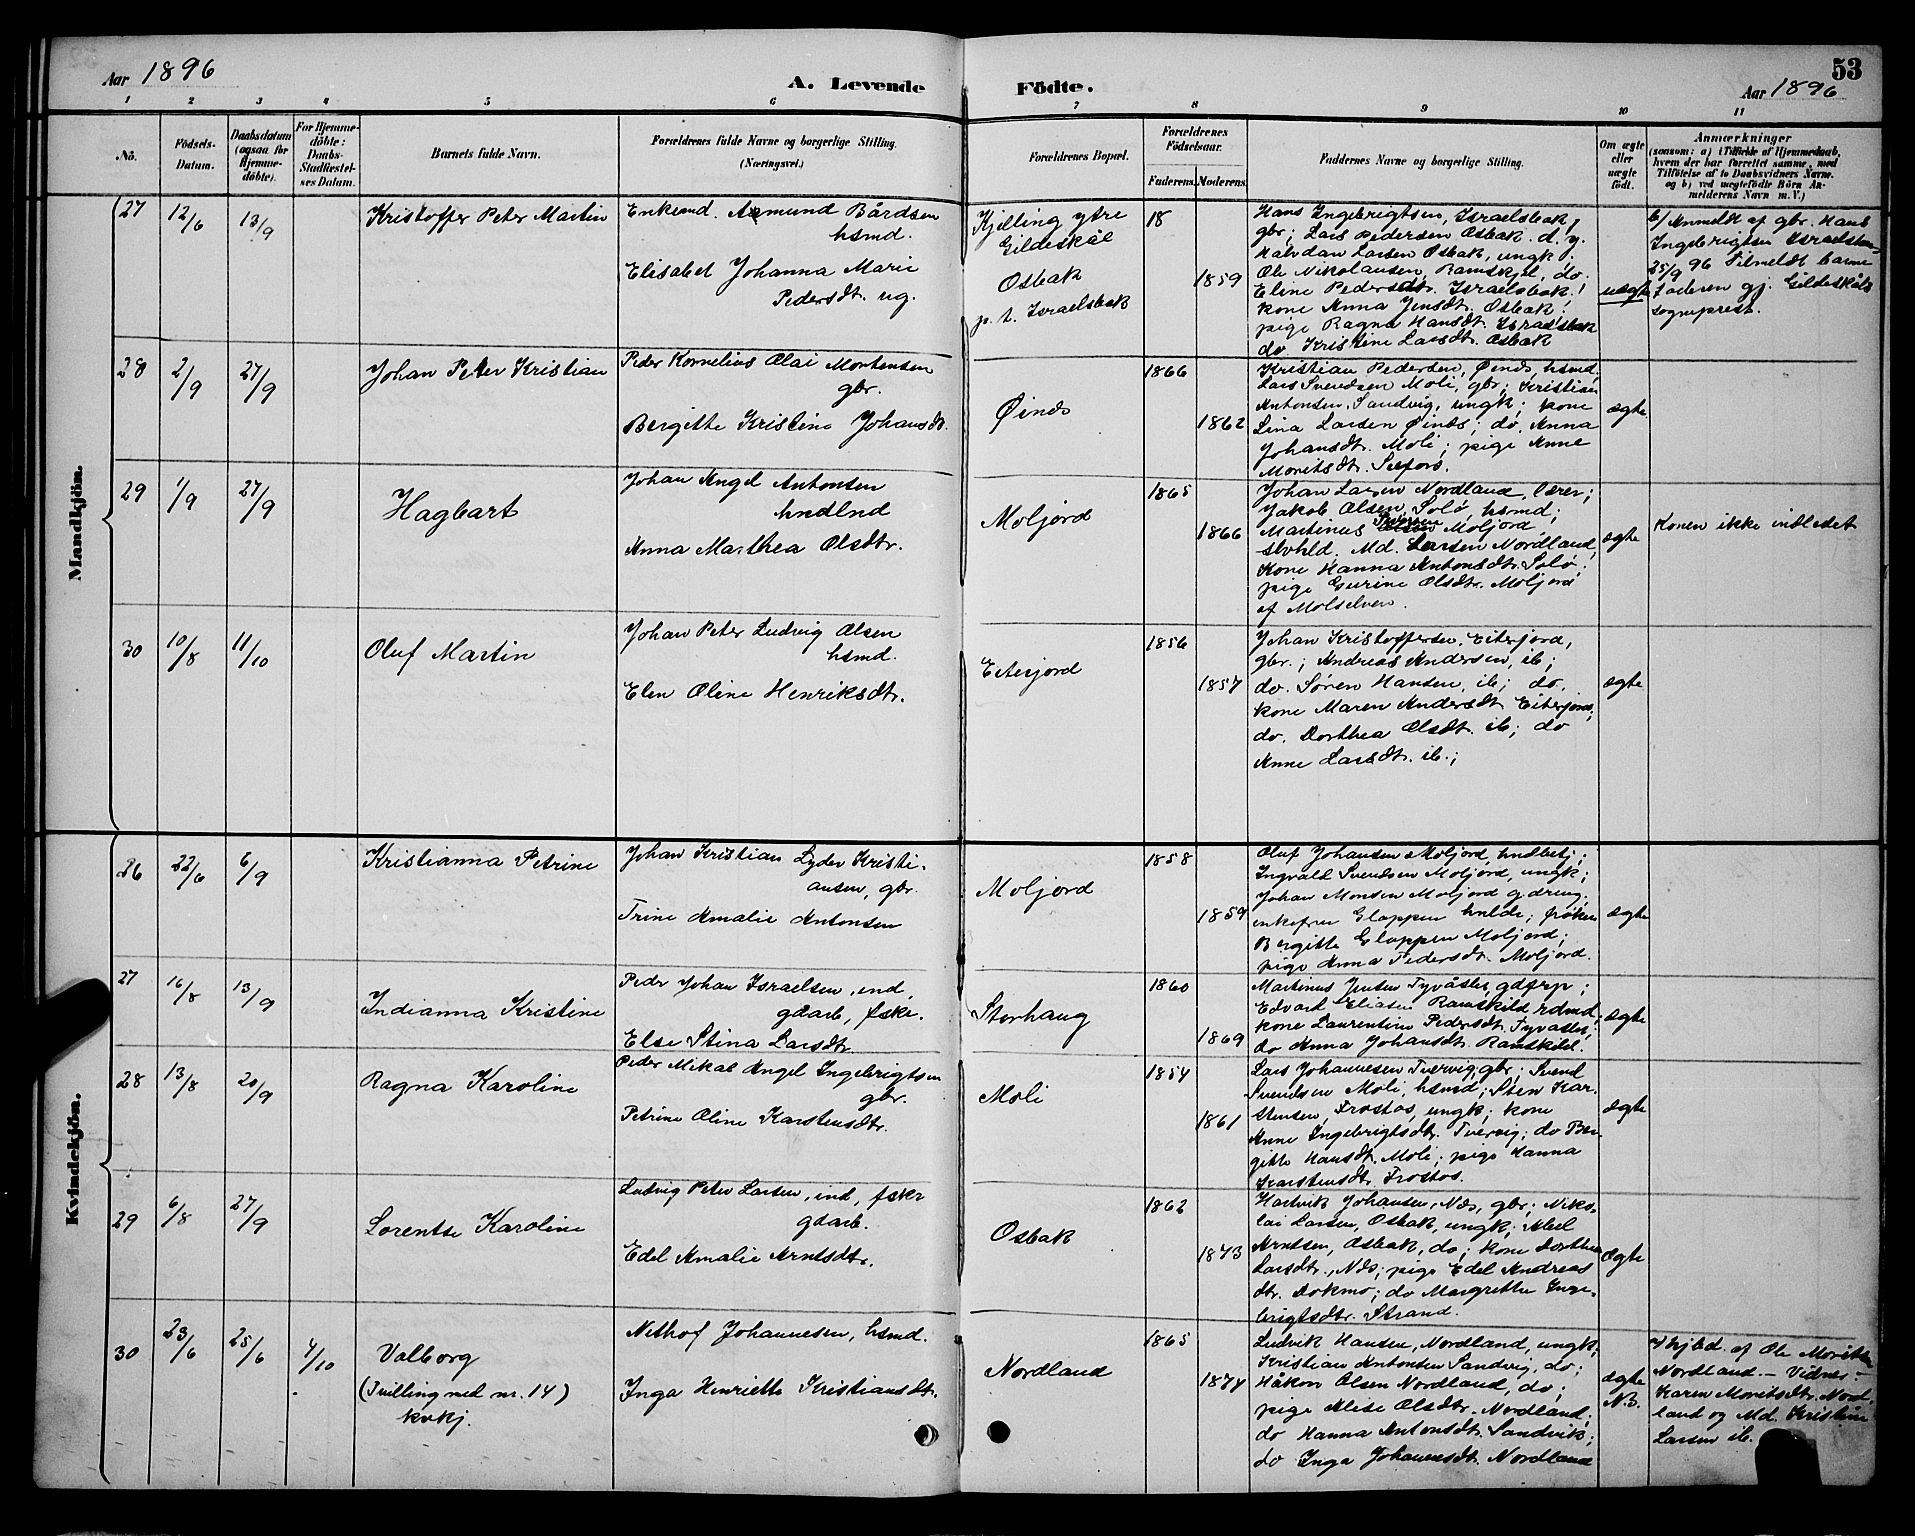 Aar 1896
A. Levende Födte.
Aar 1896
53
1 2 3 4 5 6 7 8 9 10 11
No.
Födsels-
Datum.
Daabsdatum
(ogsaa for
Hjemme-
döbte).
For Hjemme-
döbte:
Daabs-
Stadfæstel-
ses Datum.
Barnets fulde Navn.
Forældrenes fulde Navne og borgerlige Stilling.
(Næringsvei.)
Forældrenes Bopæl.
Forældrenes
Födselsaar.
Faderens. Moderens.
Faddernes Navne og borgerlige Stilling.
Om ægte
eller
uægte
födt.
Anmærkninger
(saasom: a) i Tilfælde af Hjemmedaab,
hvem der har forrettet samme, med
Tilföielse af to Daabsvidners Navne.
og b) ved uægtefödte Börn An-
melderens Navn m. V.)
Mandkjön.
27
12/6
13/9
Kristoffer Peter Martin
Enkemd. Asmund Bårdsen
hsmd.
Elisabet Johanna Marie
Pedersdt. ug.
Kjelling ytre
Gildeskål
Osbak
p. t. Israelsbak
18
1859
Hans Ingebrigtsen, Israelsbak,
gbr; Lars Pedersen Osbak. d. y.
Halvdan Larsen Osbak, ungk;
Ole Nikolausen, Ramskjel, do.
Eline Pedersdt. Israelsbak;
kone Anna Jensdt. Osbak;
pige Ragna Hansdt. Israelsbak
do Kristine Larsdt. Osbak
uægte
b/ Anmeldt af gbr. Hans
Ingebrigtsen Israelsbak
25/9 96 Tilmeldt barne-
faderen gj. Gildeskåls
sogneprest.
28
2/9
27/9
Johan Peter Kristian
Peder Kornelius Olai Mortensen
gbr.
Bergitte Kristine Johansdt.
Øines
1866
1862
Kristian Pedersen, Øines, hsmd,
Lars Svendsen Moli, gbr; Kristian
Antonsen, Sandvig, ungk; kone
Lina Larsen Øines; do, Anna
Johansdt. Moli; pige Anne
Moritsdt.
ægte
29
1/9
27/9
Hagbart
Johan Angel Antonsen
hndlnd
Anna Marthea Olsdtr.
Moljord
1865
1866
Johan Larsen Nordland, lærer;
Jakob Olsen, Solø, hsmd;
Martinus Moljord,
Md. Larsen Nordland,
Kone Hanna Antonsdt. Solø.
pige Gurine Olsdt. Moljord
af Molselven.
ægte
Konen ikke indledet
30
10/8
11/10
Oluf Martin
Johan Peter Ludvig Olsen
hsmd.
Elen Oline Henriksdtr.
Eiterjord
1856
1857
Johan Kristoffersen, Eiterjord,
gbr.; Andreas Andersen, ib;
do. Søren Hansen, ib; do.
kone Maren Andersdt Eiterjord;
do. Dorthea Olsdt. ib; do
Anne Larsdt. ib.;
ægte
Kvindekjön.
26
22/6
6/9
Kristianna Petrine
Johan Kristian Lyder Kristi-
ansen, gbr.
Trine Amalie Antonsen
Moljord
1858
1859
Oluf Johansen Moljord, hndbetj;
Ingvald Svendsen Moljord, ungk;
Johan Monsen Moljord gdreng,
enkefru Gloppen hnlde; frøken
Bergitte Gloppen Moljord;
pige Anna Pedersdt. Moljord.
ægte
27
16/8
13/9
Indianna Kristine
Peder Johan Israelsen, ind,
gdarb, fskr.
Else Stina Larsdt.
Storhaug
1860
1869
Martinus Jensen Tyvåsler, gdbrp;
Edvard Eliasen Ramskild, rdmd,
kone Laurentine Pedersdt. Tyvåsler;
do Anna Johansdt. Ramskild.
ægte
28
13/8
20/9
Ragna Karoline
Peder Mikal Angel Ingebrigtsen
gbr.
Petrine Oline Karstensdtr.
Moli
1854
1861
Lars Johannesen Tvervig, gbr; Svend
Svendsen Moli, hsmd; Sten Kar-
stensen, Frostos, ungk; kone
Anne Ingebrigtsdtr. Tvervig; do Ber-
gitte Hansdt. Moli; pige Hanna
Karstensdt. Frostos.
ægte
29
6/8
27/9
Lorentse Karoline
Ludvig Peter Larsen, ind, fskr
gdarb.
Edel Amalie Arntsdtr.
Osbak
1862
1873
Hartvik Johansen, Næs, gbr; Niko-
lai Larsen, Osbak, ungk; Abel
Arntsen, Osbak, do; kone Dorthea
Larsdtr, Næs; pige Edel Andreas
dtr. Dokmo; do Margrethe Inge-
brigtsdtr. Strand.
ægte
30
23/6
25/6
4/10
Valborg
(Tvilling med nr. 14)
kvkj.
Nethof Johannesen, hsmd.
Inga Henriette Kristiansdt.
Nordland
1865
1874
Ludvik Hansen, Nordland, ungk;
Kristian Antonsen Sandvig, do;
Håkon Olsen Nordland, do;
pige Alese Olsdtr. Nordland;
do Hanna Antonsdt. Sandvik;
do Inga Johannesdt. Nordland
ægte
N.B.
Hjbd. af Ole Moritsen
Nordland. – Vidner:–
Karen Moritsdtr. Nord-
land og Md. Kristine
Larsen ib.